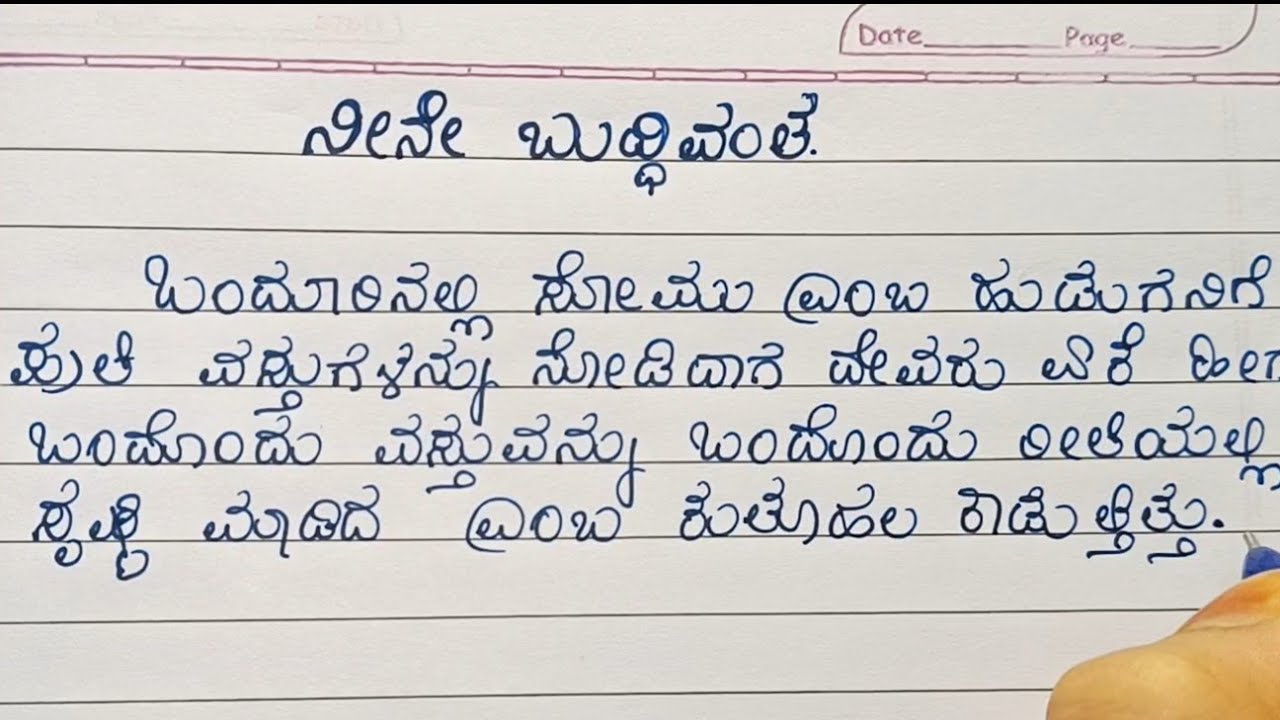 Date Page
ನೀನೇ ಬುದ್ಧಿವಂತೆ.
ಒಂದೂರಿನಲ್ಲಿ ಸೋಮು ಎಂಬ ಹುಡುಗನಿಗೆ
ಪ್ರತಿ ವಸ್ತುಗಳನ್ನು ನೋಡಿದಾಗ ದೇವರು ಏಕೆ ಹೀಗೆ
ಒಂದೊಂದು ವಸ್ತುವನ್ನು ಒಂದೊಂದು ರೀತಿಯಲ್ಲಿ
ಸೃಷ್ಟಿ ಮಾಡಿದ ಎಂಬ ಕುತೂಹಲ ಕಾಡುತ್ತಿತ್ತು.